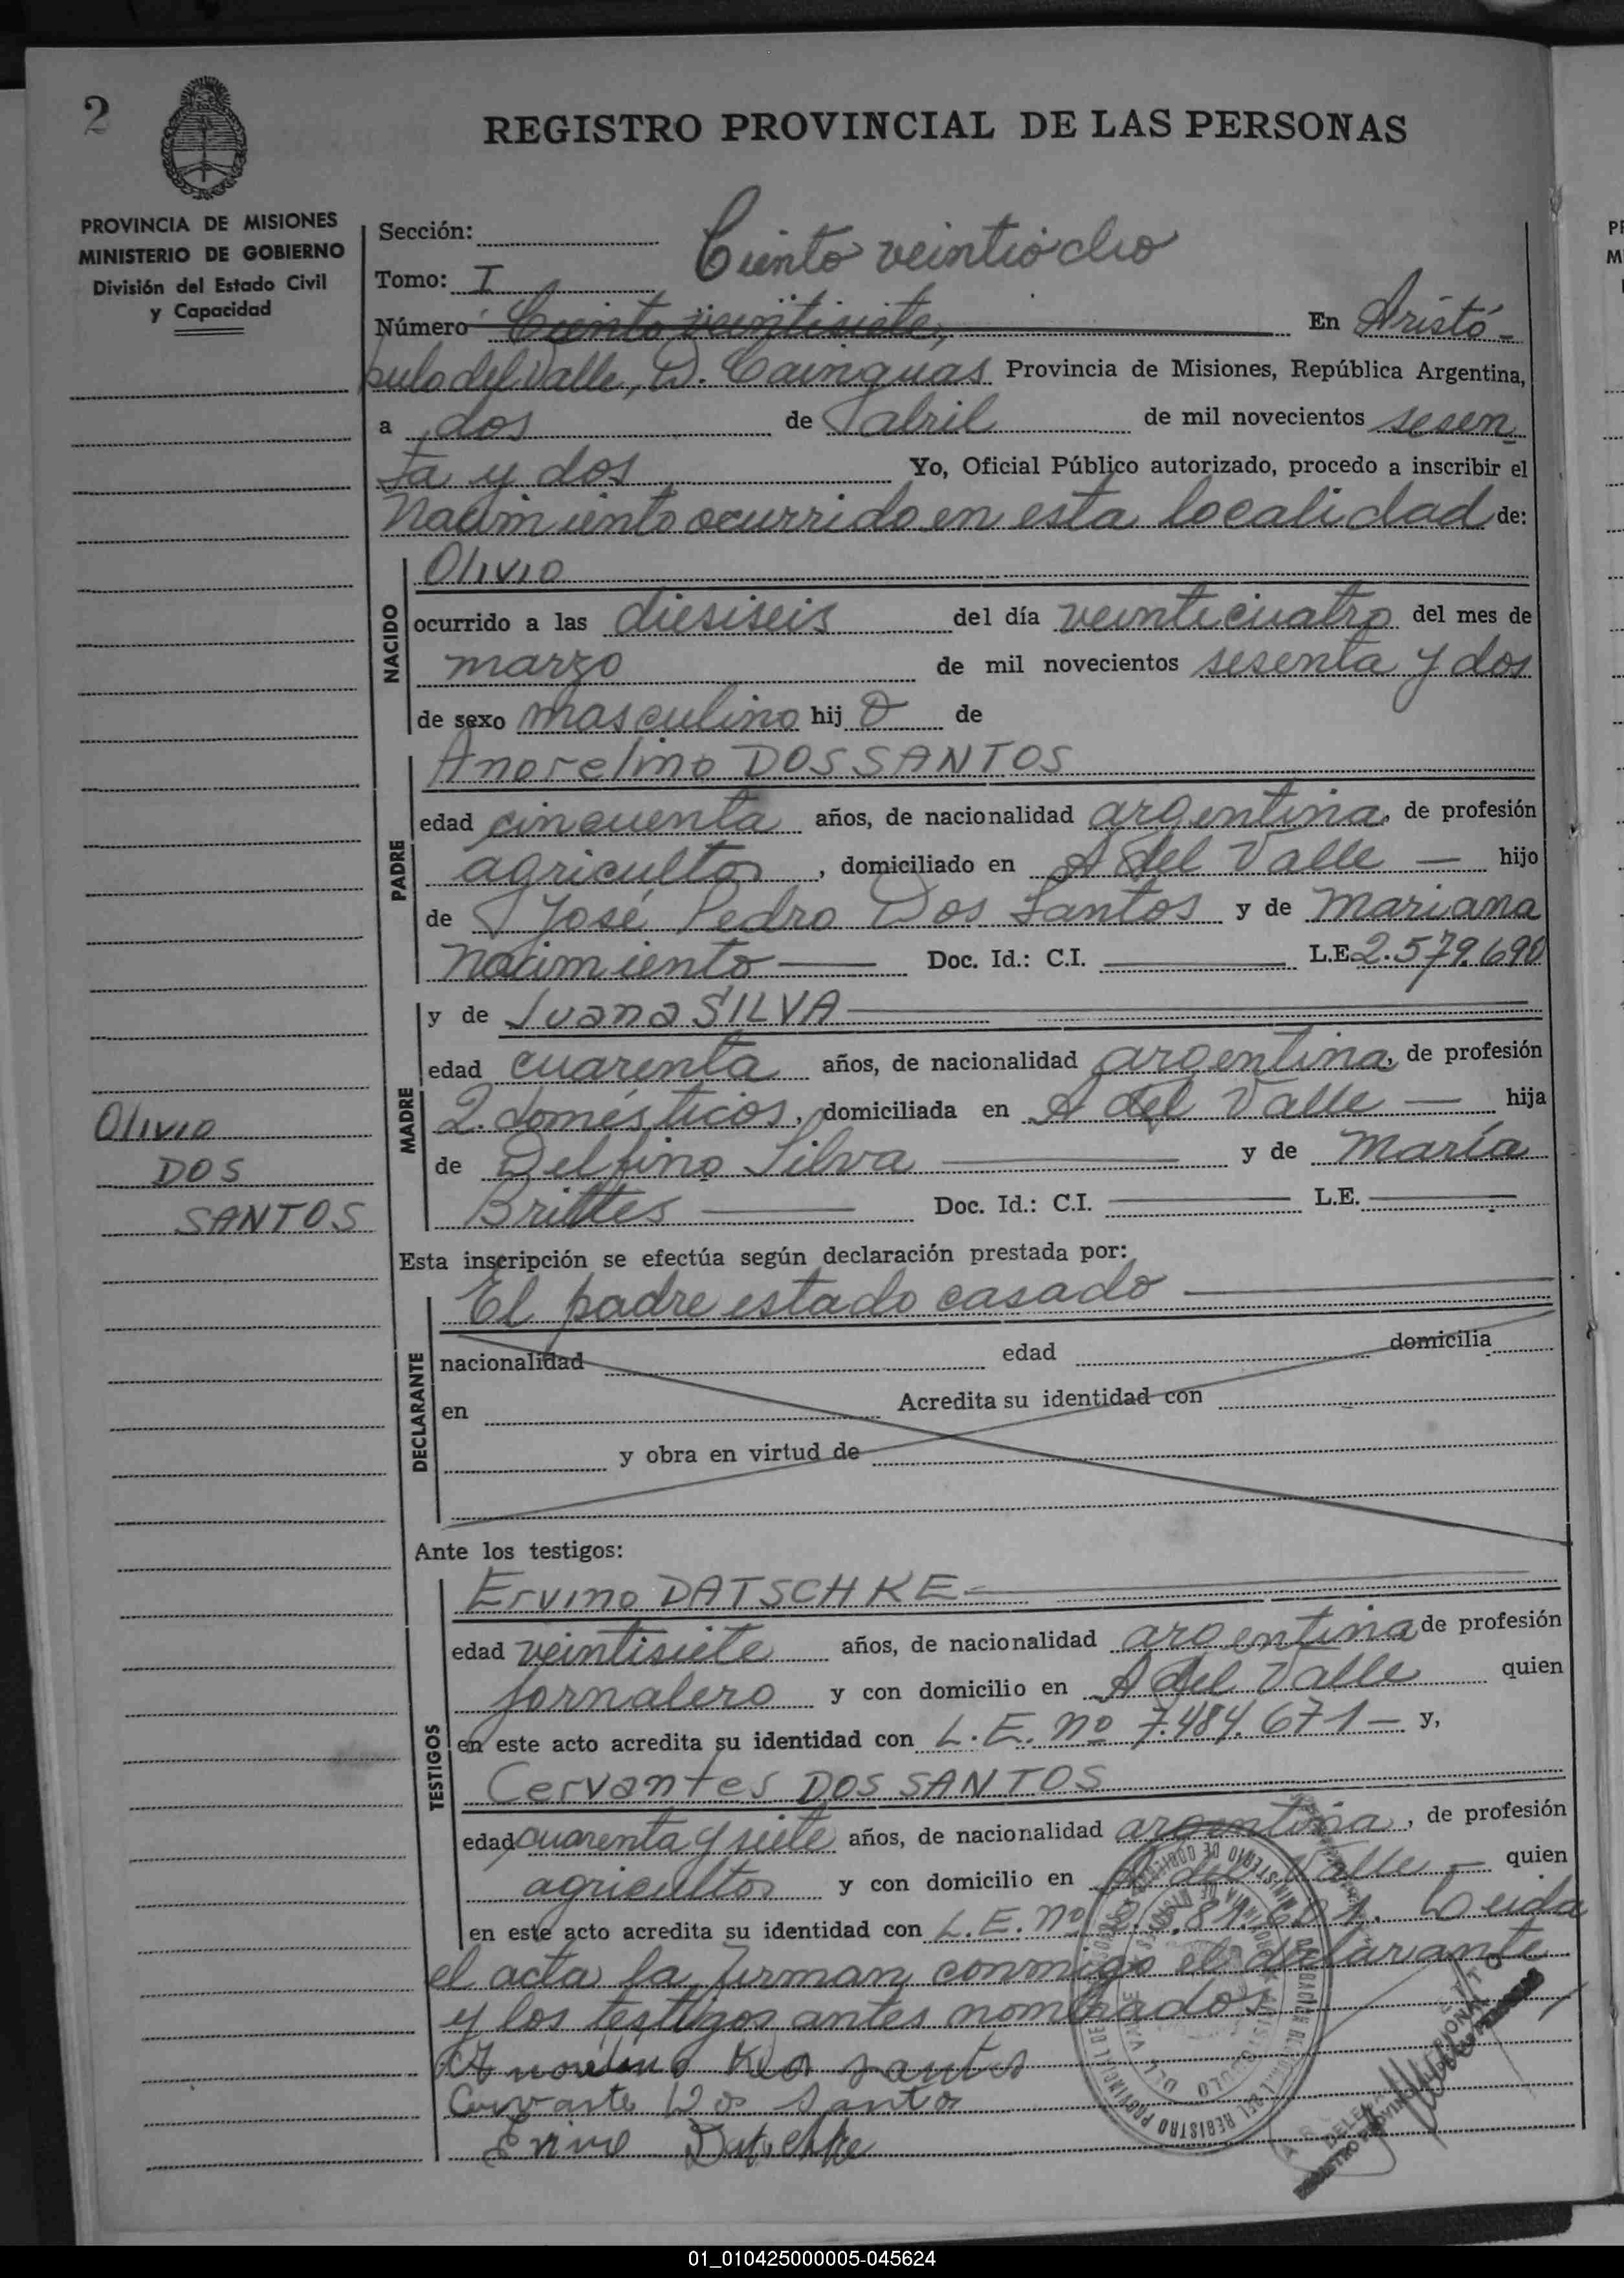 2
REGISTRO PROVINCIAL DE LAS PERSONAS
PROVINCIA DE MISIONES
MINISTERIO DE GOBIERNO
División del Estado Civil
y Capacidad
Sección:
Ciento veintiocho
Tomo: I
Número Ciento veintisiete, En Aristó-
bulo del Valle, D. Cainguás Provincia de Misiones, República Argentina,
a dos de abril de mil novecientos sesen
ta y dos Yo, Oficial Público autorizado, procedo a inscribir el
Nacimiento ocurrido en esta localidad de:
NACIDO
Olivio
ocurrido a las diesiseis del día veinticuatro del mes de
marzo de mil novecientos sesenta y dos
de sexo masculino hij o de
PADRE
Anorelino DOS SANTOS
edad cincuenta años, de nacionalidad argentina, de profesión
agricultor, domiciliado en A del Valle — hijo
de José Pedro Dos Santos y de Mariana
Nacimiento — Doc. Id.: C.I. — L.E. 2.579.690
MADRE
y de Juana SILVA —
edad cuarenta años, de nacionalidad argentina, de profesión
Q. domésticos, domiciliada en A del Valle — hija
de Delfino Silva — y de María
Brittes — Doc. Id.: C.I. — L.E. —
Olivio
DOS
SANTOS
Esta inscripción se efectúa según declaración prestada por:
DECLARANTE
El padre estado casado —
nacionalidad edad domicilia
en Acredita su identidad con
y obra en virtud de
Ante los testigos:
TESTIGOS
Ervino DATSCHKE —
edad veintisiete años, de nacionalidad argentina de profesión
jornalero y con domicilio en A del Valle quien
en este acto acredita su identidad con L.E. nº 7.484.671 — y,
Cervantes DOS SANTOS
edad cuarenta y siete años, de nacionalidad argentina, de profesión
agricultor y con domicilio en A del Valle — quien
en este acto acredita su identidad con L.E. nº Leida
el acta la firman conmigo el declarante
y los testigos antes nombrados
Anorelino Dos santos
Cervante Dos Santo
Ervino Datschke
01_010425000005-045624